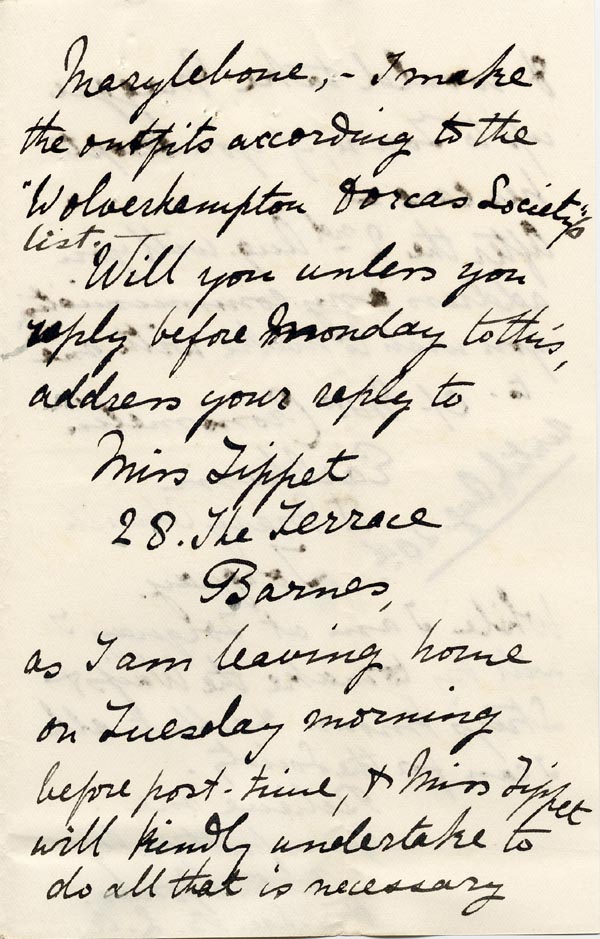 Marylebone, - I make
the outfits according to the
"Wolverhampton Dorcas Society's"
list. -
Will you unless you
reply before Monday to this,
address your reply to
Miss Tippet
28. The Terrace
Barnes,
as I am leaving home
on Tuesday morning
before post-time, & Miss Tippet
will kindly undertake to
do all that is necessary